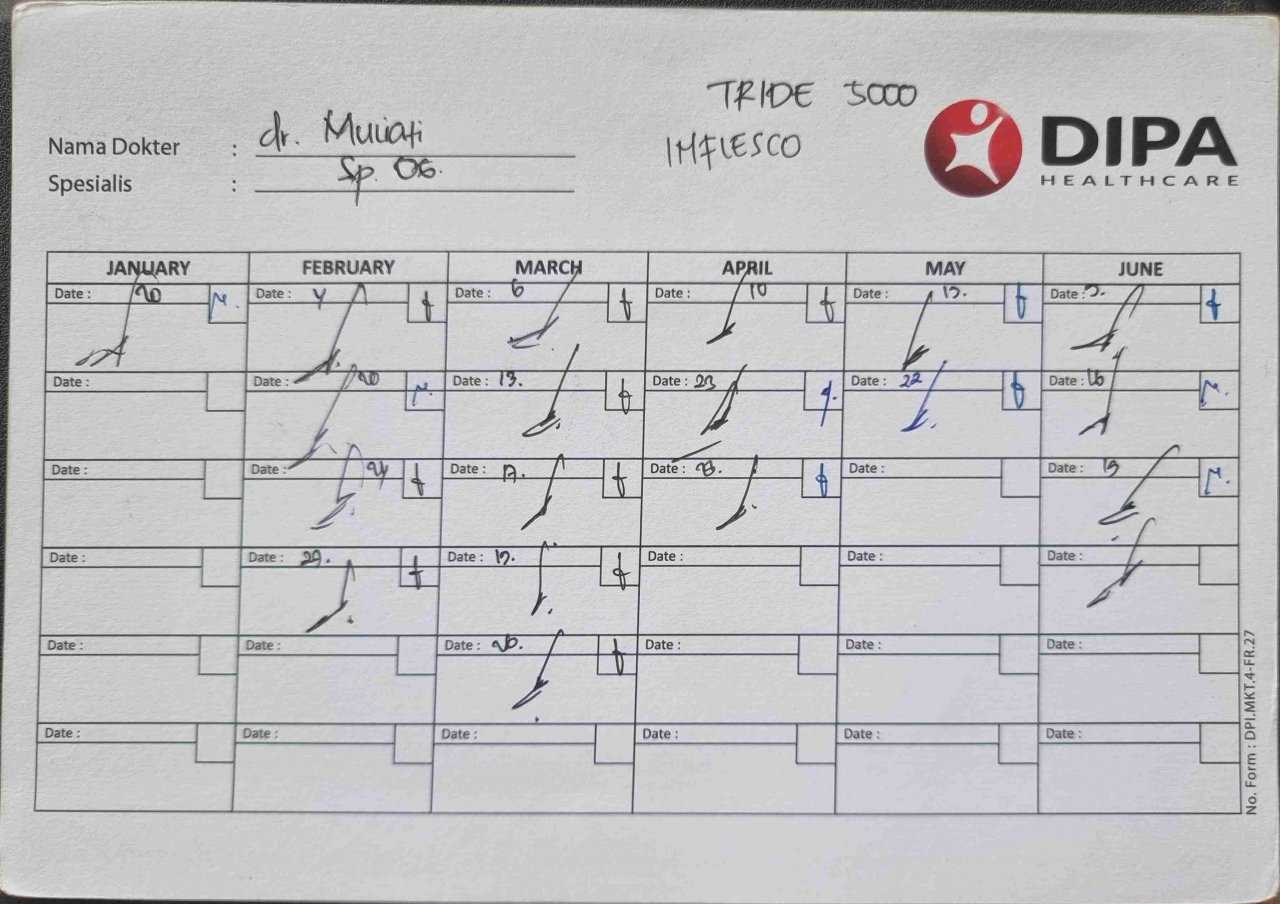 TRIDE 5000
Nama Dokter : dr. Muliati
IMFLESCO
DIPA
HEALTHCARE
Spesialis : Sp. OG.
JANUARY FEBRUARY MARCH APRIL MAY JUNE
Date : 20 Date : 4 Date : 6 Date : 10 Date : 13. Date : 3.
Date : Date : 20 Date : 13. Date : 23 Date : 22 Date : 16
Date : Date : 24 Date : 17. Date : Date : Date : 19
Date : Date : 27. Date : 19. Date : Date : Date :
Date : Date : Date : 26. Date : Date : Date :
Date : Date : Date : Date : Date : Date :
No. Form : DPI.MKT.4-FR.27